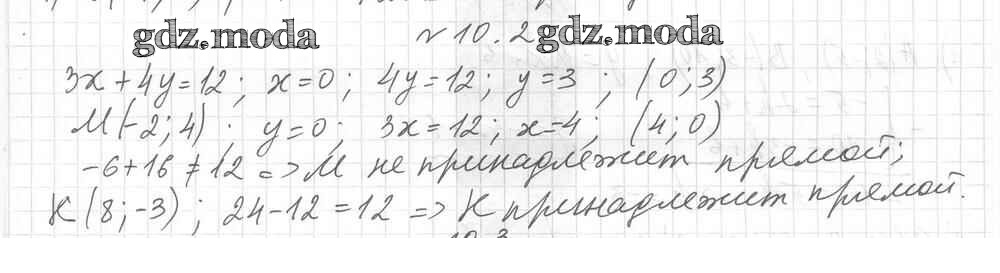 gdz.moda № 10.2 gdz.moda
3x + 4y = 12; x = 0; 4y = 12; y = 3; (0; 3)
M(-2; 4); y = 0; 3x = 12; x = 4; (4; 0)
-6 + 16 ≠ 12 => M не принадлежит прямой;
K(8; -3); 24 - 12 = 12 => K принадлежит прямой.